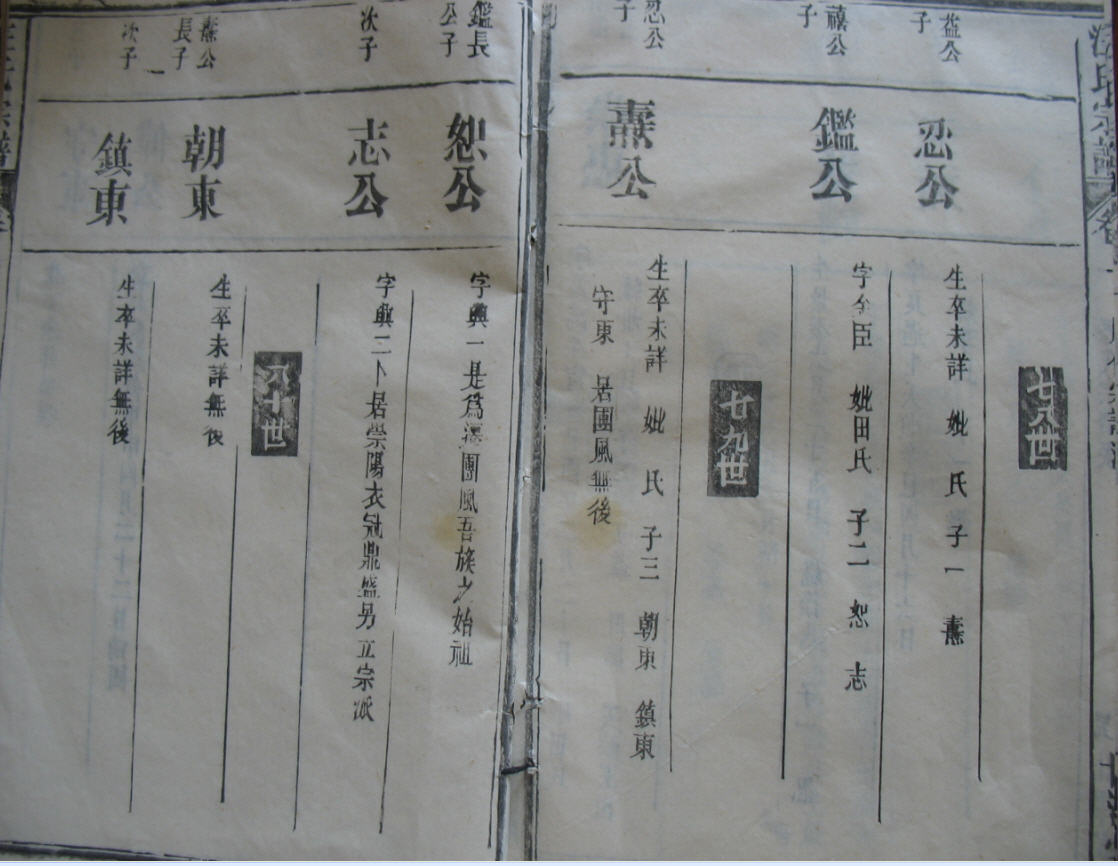 汪氏宗譜
七八世
益公子
忍公
生卒未詳 妣 氏 子一 燾
禧公子
鑑公
字金臣 妣田氏 子二 恕 志
七九世
忍公子
燾公
生卒未詳 妣 氏 子三 朝東 鎮東
守東 居團風無後
鑑公長子
恕公
字興一是爲遷團風吾族之始祖
次子
志公
字興二卜居崇陽衣冠鼎盛另立宗派
八十世
燾公長子
朝東
生卒未詳無後
次子
鎮東
生卒未詳無後